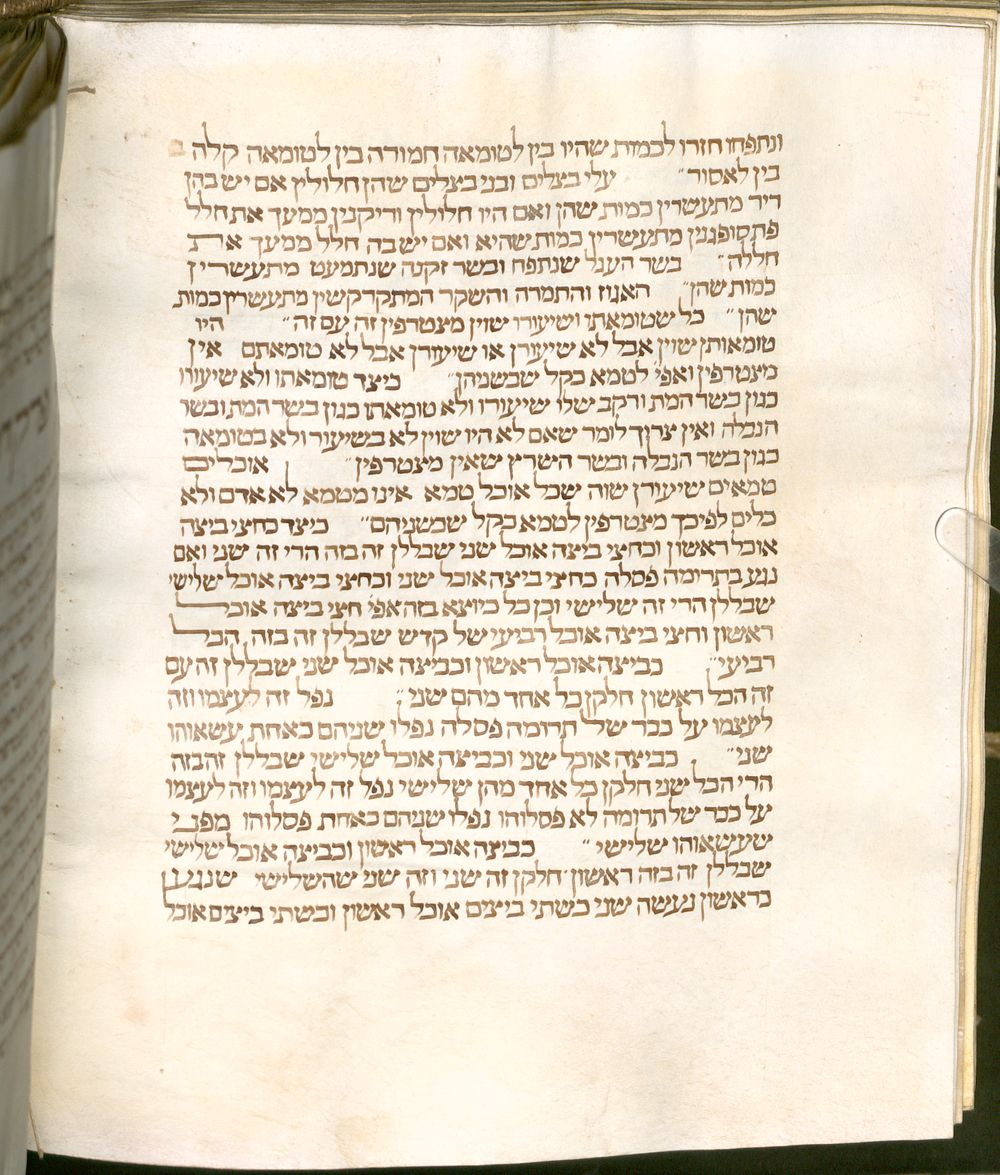 ונתפחו חזרו לכמות שהיו בין לטומאה חמורה בין לטומאה קלה
בין לאסור״ עלי בצלים ובני בצלים שהן חלולין אם יש בהן
ריר מתעשרין כמות שהן ואם היו חלולין וריקנין ממעך את חלל
פת סופגנין מתעשרין כמות שהיא ואם יש בה חלל ממעך את
חללה״ בשר העגל שנתפח ובשר זקנה שנתמעט מתעשרין
כמות שהן״ האגוז והתמרה והשקד המתקרקשין מתעשרין כמות
שהן״ כל שטומאתו ושיעורו שוין מצטרפין זה עם זה״ היו
טומאותן שוין אבל לא שיעורן או שיעורן אבל לא טומאתם אין
מצטרפין ואפי׳ לטמא כקל שבשניהן״ כיצד טומאתו ולא שיעורו
כגון בשר המת ורקב שלו שיעורו ולא טומאתו כגון בשר המת ובשר
הנבלה ואין צרוך לומר שאם לא היו שוין לא בשיעור ולא בטומאה
כגון בשר הנבלה ובשר השרץ שאין מצטרפין״ אוכלים
טמאים שיעורן שוה שכל אוכל טמא אינו מטמא לא אדם ולא
כלים לפיכך מצטרפין לטמא כקל שבשניהם״ כיצד כחצי ביצה
אוכל ראשון וכחצי ביצה אוכל שני שבללן זה בזה הרי זה שני ואם
נגע בתרומה פסלה כחצי ביצה אוכל שני וכחצי ביצה אוכל שלישי
שבללן הרי זה שלישי וכן כל כיוצא בזה אפי׳ חצי ביצה אוכל
ראשון וחצי ביצה אוכל רביעי של קדש שבללן זה בזה הכל
רביעי״ כביצה אוכל ראשון וכביצה אוכל שני שבללן זה עם
זה הכל ראשון חלקן כל אחד מהם שני״ נפל זה לעצמו וזה
לעצמו על ככר של תרומה פסלה נפלו שניהם כאחת עשאוהו
שני״ כביצה אוכל שני וכביצה אוכל שלישי שבללן זה בזה
הרי הכל שני חלקן כל אחד מהן שלישי נפל זה לעצמו וזה לעצמו
על ככר של תרומה לא פסלוהו נפלו שניהם כאחת פסלוהו מפני
שעשאוהו שלישי״ כביצה אוכל ראשון וכביצה אוכל שלישי
שבללן זה בזה ראשון חלקן זה שני וזה שני שהשלישי שנגע
בראשון נעשה שני כשתי ביצים אוכל ראשון וכשתי ביצים אוכל